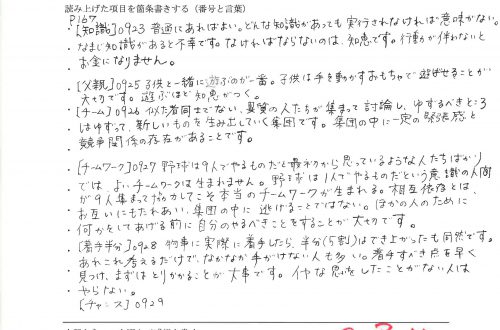 読み上げた項目を箇条書きする（番号と言葉）
P167
・［知識］0923 普通にあればよい。どんな知識があっても実行されなければ意味がない。
なまじ知識があると不幸です。なければならないのは、知恵です。行動が伴わないと
お金になりません。
・［父親］0925 子供と一緒に遊ぶのが一番。子供は手を動かすおもちゃで遊ばせることが
大切です。遊ぶほど知恵がつく。
・［チーム］0926 似た者同士でない、異質の人たちが集まって討論し、ゆずるべきところ
はゆずって、新しいものを生み出していく集団です。集団の中に一定の緊張感と
競争関係の存在があることです。
・［チームワーク］0927 野球は9人でやるものだと最初から思っているような人たちばかり
では、よいチームワークは生まれません。野球は1人でやるものだという意識の人間
が9人集まって協力してこそ本当のチームワークが生まれる。相互依存とは、
お互いにもたれあい、集団の中に逃げることではない。ほかの人のために
何かをしてあげる前に自分のやるべきことをすることが大切です。
・［着手半分］0928 物事に実際に着手したら、半分（5割）はでき上がったも同然です。
あれこれ考えるだけで、なかなか手がけない人も多い。着手すべき点を早く
見つけ、まずはとりかかることが大事です。イヤな思をしたことがない人は
やらない。
・［チャンス］0929